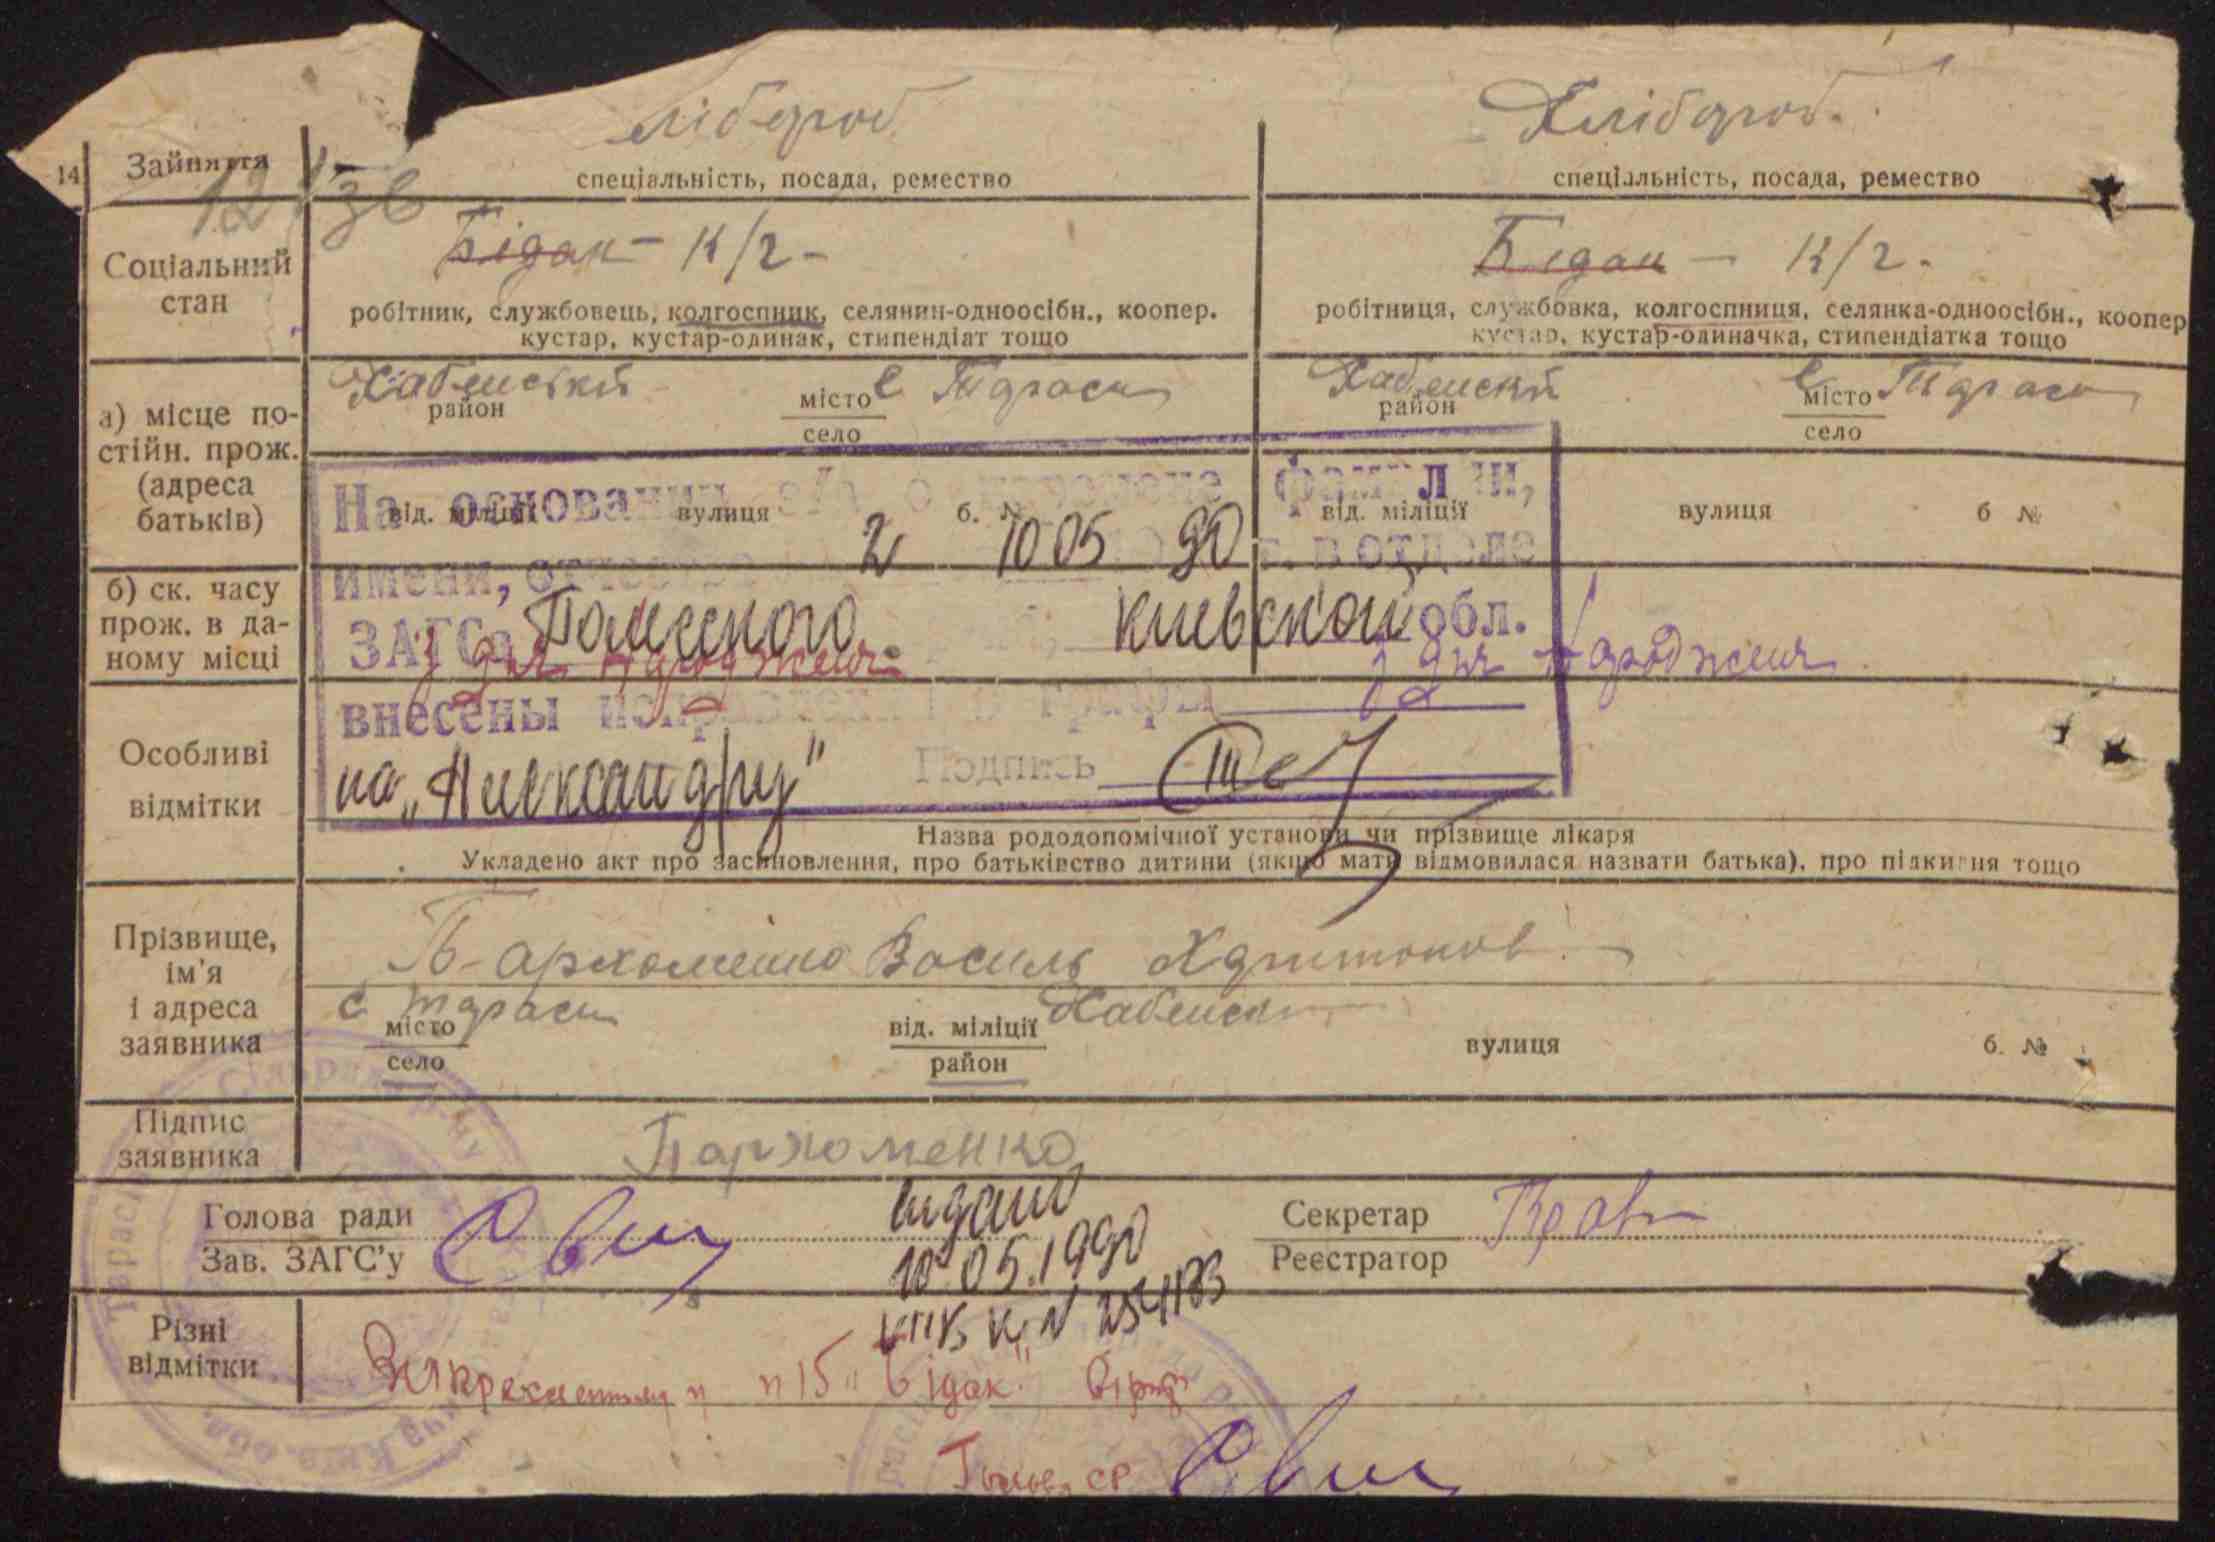 лібороб Хлібороб.
14 Зайняття спеціальність, посада, ремество спеціальність, посада, ремество
12/зв
Бідак - к/г - Бідак - к/г -
Соціальний стан
робітник, службовець, колгоспник, селянин-одноосібн., коопер. кустар, кустар-одинак, стипендіат тощо
робітниця, службовка, колгоспниця, селянка-одноосібн., коопер кустар, кустар-одиначка, стипендіатка тощо
Хабенський район місто село с Тараси Хабенский район місто село с Тараси
а) місце постійн. прож. (адреса батьків)
від. міліції вулиця б. № від. міліції вулиця б №
На основании з/а о перемене фамилии,
имени, отчества 2 10 05 90 г. в отделе
ЗАГСа Полесского Киевской обл.
внесены исправления в графы
на „Александру"
Подпись
б) ск. часу прож. в даному місці
з дня народження з дня народження
Особливі відмітки
Назва рододопомічної установи чи прізвище лікаря
Укладено акт про засиновлення, про батьківство дитини (якщо мати відмовилася назвати батька), про підкидня тощо
Прізвище, ім'я і адреса заявника
Пархоменко Василь Харитонов.
с Тараси Хабенськ
місто село від. міліції район вулиця б. №
Підпис заявника
Пархоменко
Голова ради
Зав. ЗАГС'у
Секретар
Реєстратор
10.05.1990
Різні відмітки
п 15 „бідак" вірити
Голова ср